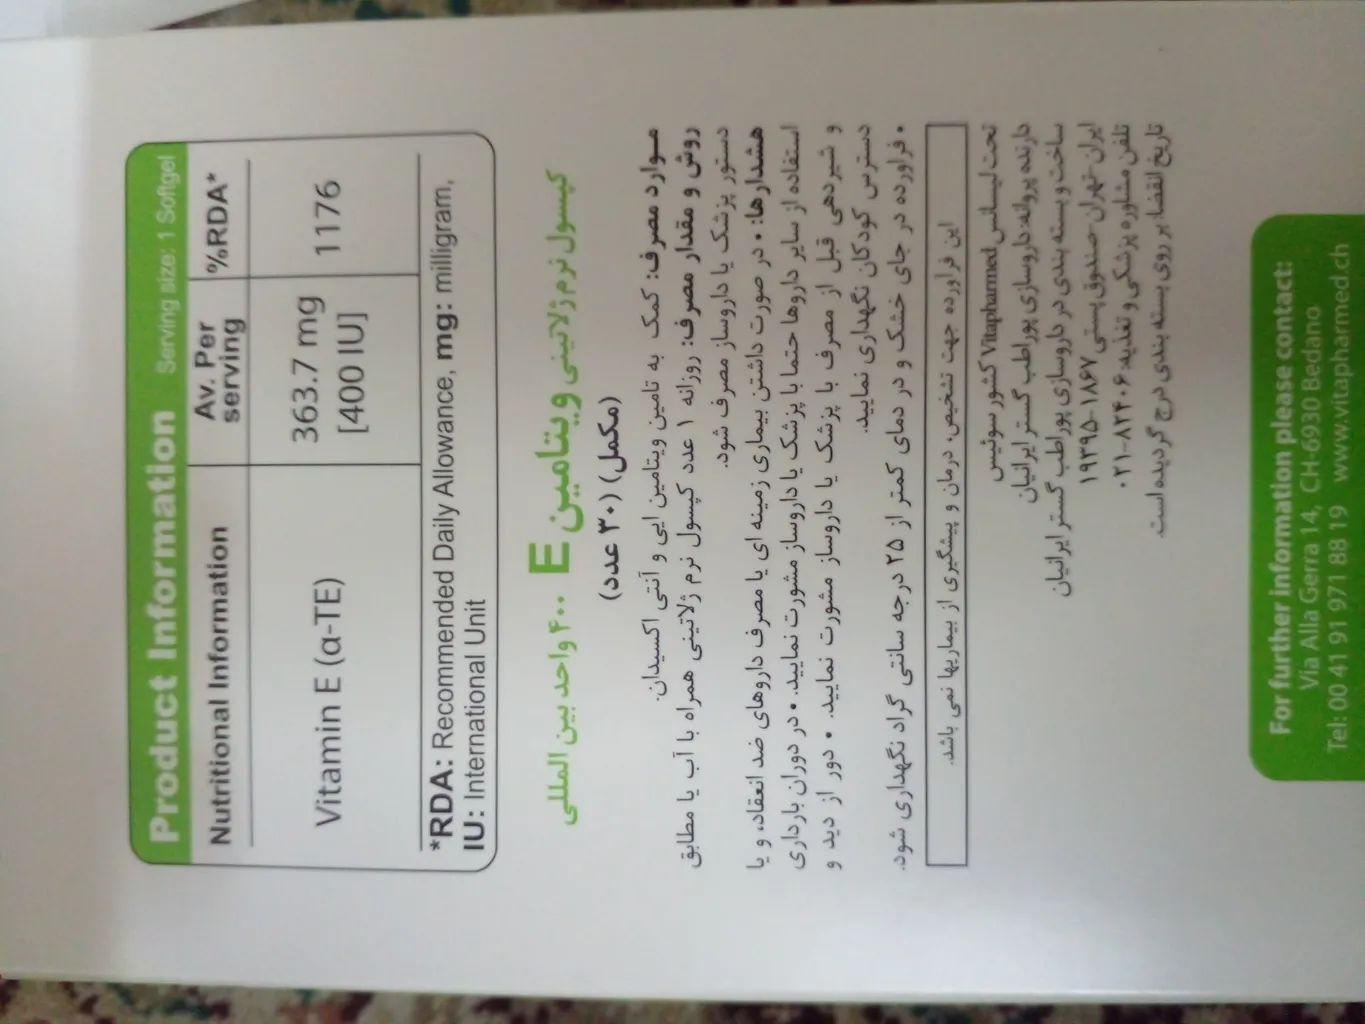 Product Information Serving size: 1 Softgel
Nutritional Information Av. Per serving %RDA*
Vitamin E (α-TE) 363.7 mg [400 IU] 1176
*RDA: Recommended Daily Allowance, mg: milligram,
IU: International Unit
کپسول نرم ژلاتینی ویتامین E ۴۰۰ واحد بین المللی
(مکمل) (۳۰ عدد)
موارد مصرف: کمک به تامین ویتامین ایی و آنتی اکسیدان.
روش و مقدار مصرف: روزانه ۱ عدد کپسول نرم ژلاتینی همراه با آب یا مطابق
دستور پزشک یا داروساز مصرف شود.
هشدارها: • در صورت داشتن بیماری زمینه ای یا مصرف داروهای ضد انعقاد، و یا
استفاده از سایر داروها حتما با پزشک یا داروساز مشورت نمایید. • در دوران بارداری
و شیردهی قبل از مصرف با پزشک یا داروساز مشورت نمایید. • دور از دید و
دسترس کودکان نگهداری نمایید.
• فراورده در جای خشک و در دمای کمتر از ۲۵ درجه سانتی گراد نگهداری شود.
این فراورده جهت تشخیص، درمان و پیشگیری از بیماریها نمی باشد.
تحت لیسانس Vitapharmed کشور سوئیس
دارنده پروانه: داروسازی پوراطب گستر ایرانیان
ساخت و بسته بندی در داروسازی پوراطب گستر ایرانیان
ایران-تهران-صندوق پستی ۱۸۶۷-۱۹۳۹۵
تلفن مشاوره پزشکی و تغذیه: ۸۲۴۰۶-۰۲۱
تاریخ انقضا: بر روی بسته بندی درج گردیده است.
For further information please contact:
Via Alla Gerra 14, CH-6930 Bedano
Tel: 00 41 91 971 88 19 www.vitapharmed.ch